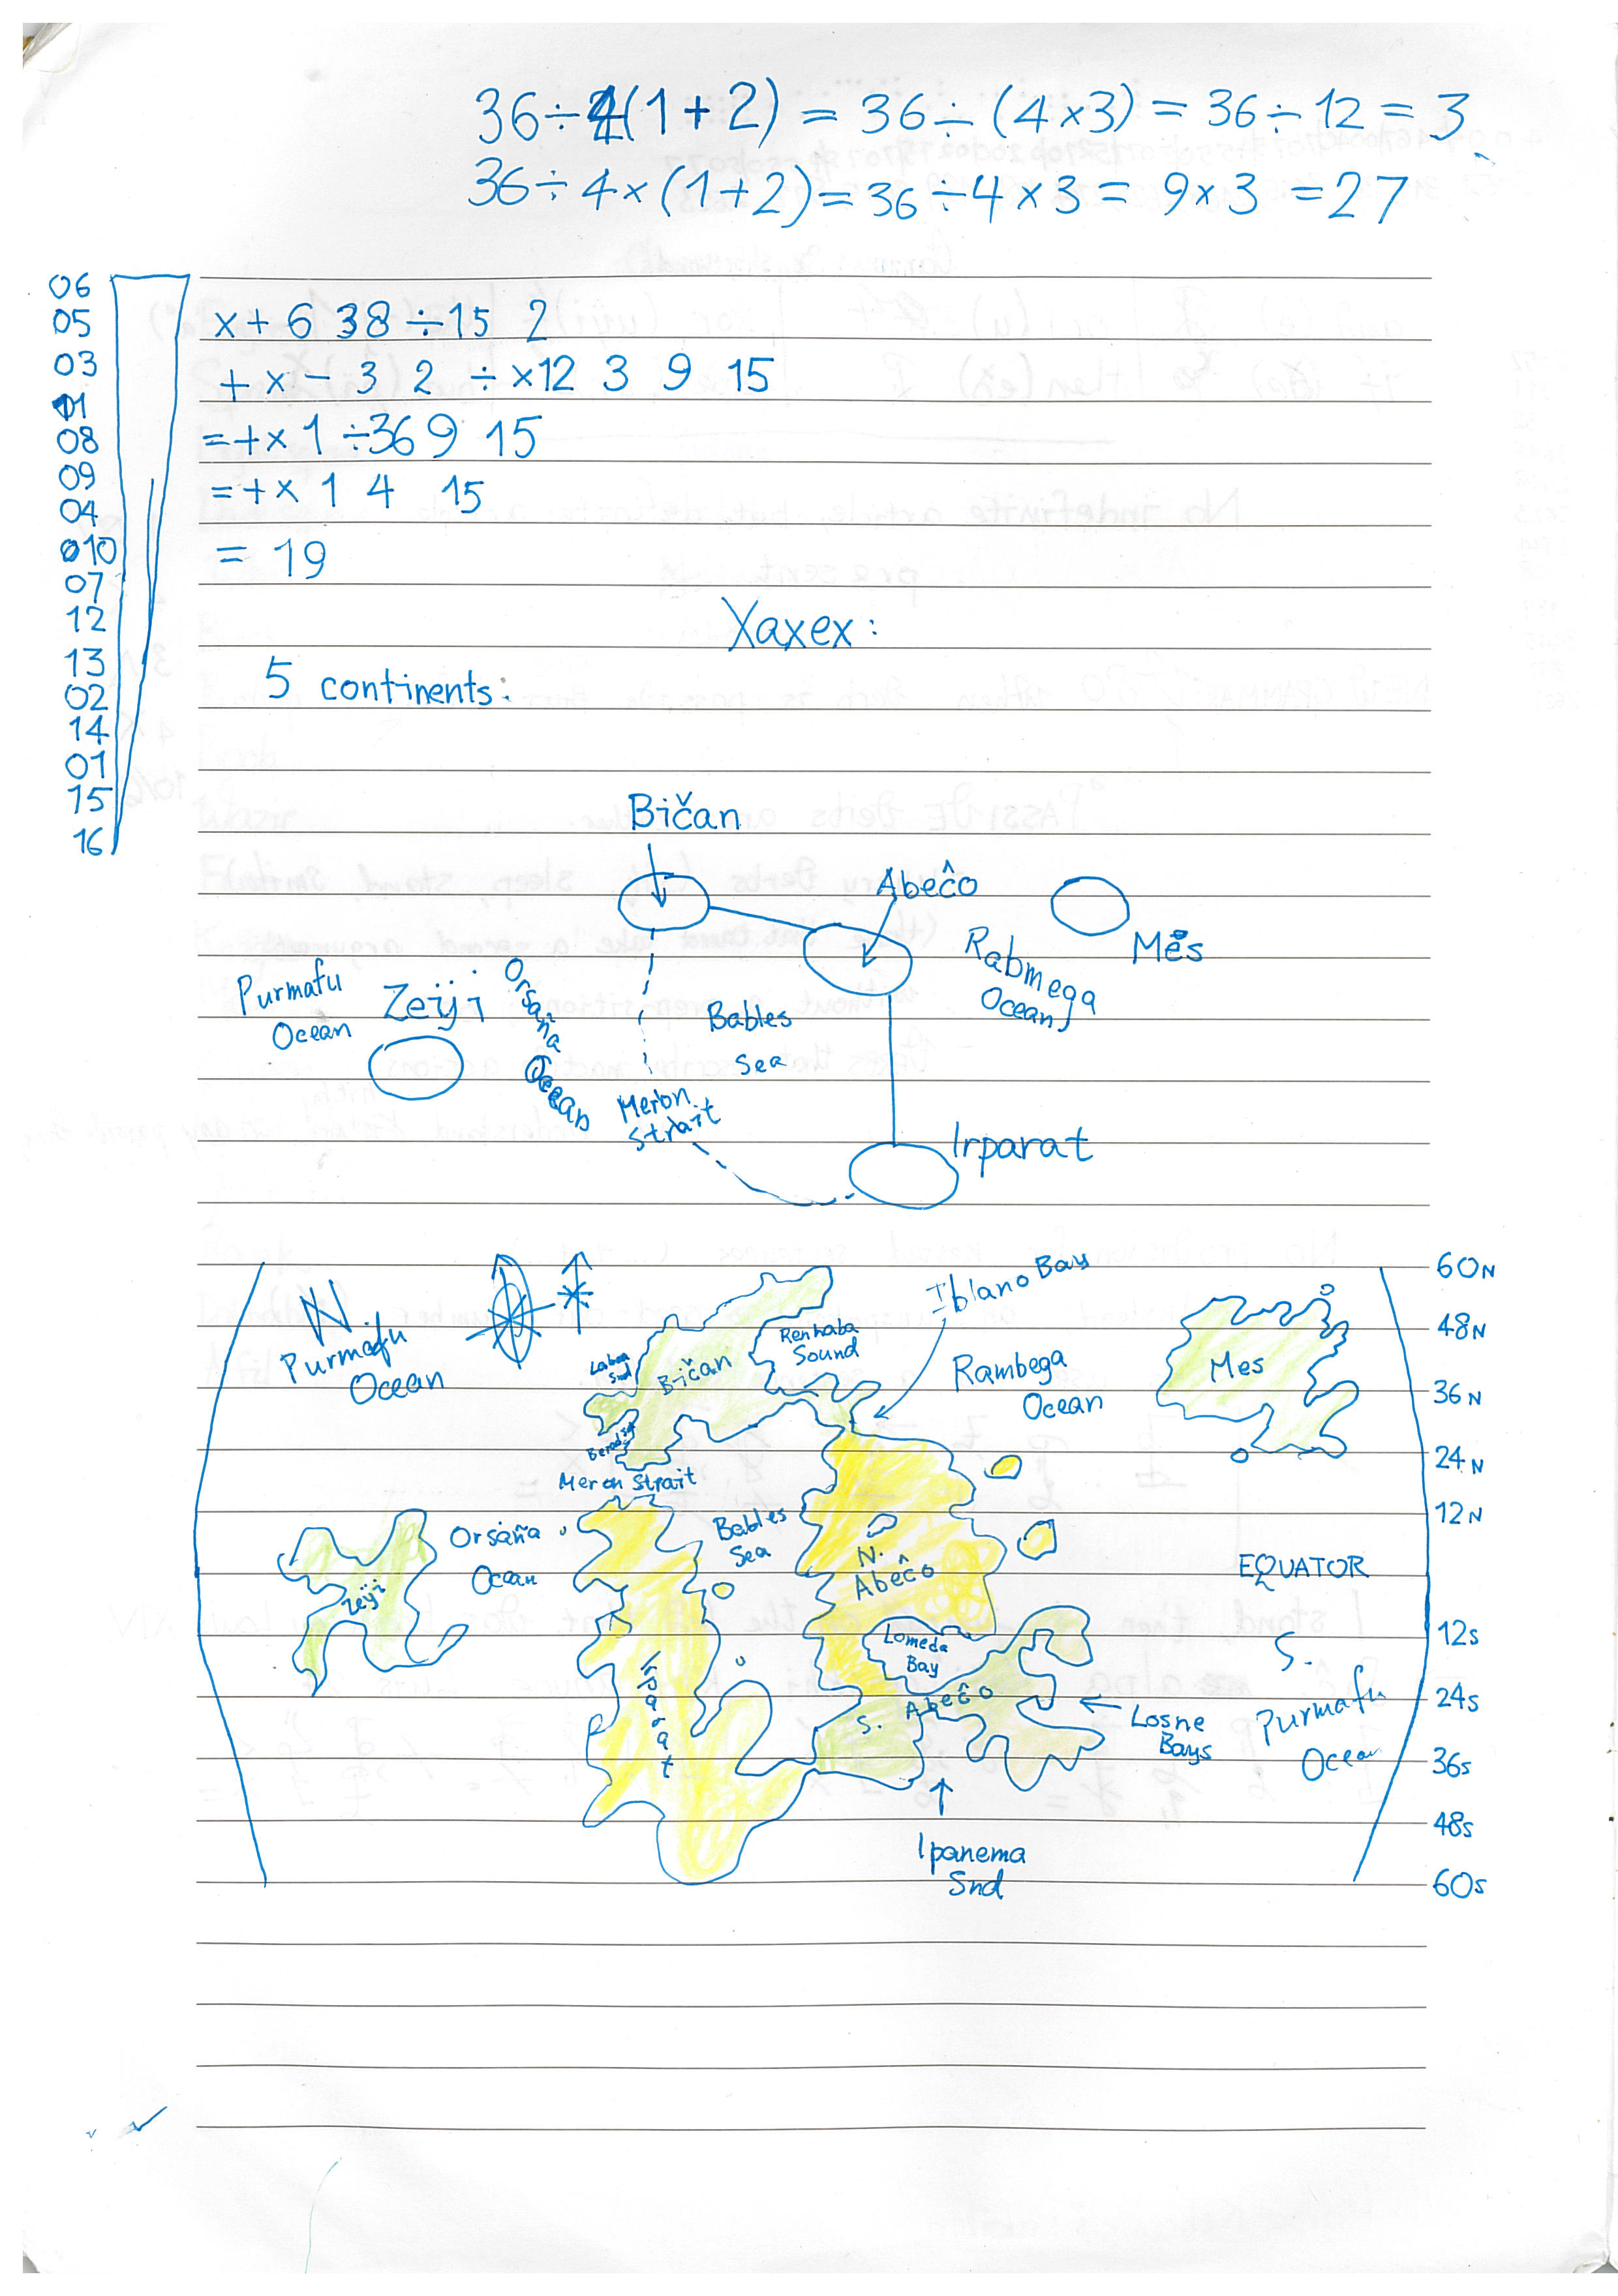 36÷4(1+2) = 36÷(4×3) = 36÷12 = 3
36÷4×(1+2)=36÷4×3 = 9×3 =27
06
05
03
11
08
09
04
010
07
12
13
02
14
01
15
16
x + 6 38 ÷15 2
+ x - 3 2 ÷ x12 3 9 15
=+x 1 ÷36 9 15
=+x 1 4 15
= 19
Xaxex:
5 continents:
Bičan
Abeĉo
Mes
Rabmega
Ocean
Purmafu
Ocean
Zeïji
Orsaña
Ocean
Bables
Sea
Meron
Strait
Irparat
N
Purmafu
Ocean
Iblano Bay
Renhaba
Sound
Bičan
Rambega
Ocean
Mes
Meron Strait
Orsaña
Ocean
Bables
Sea
N.
Abeĉo
Zeïji
EQUATOR
Lomeda
Bay
Irparat
S. Abeĉo
Losne
Bays
S.
Purmafu
Ocean
Ipanema
Snd
60N
48N
36N
24N
12N
12s
24s
36s
48s
60s